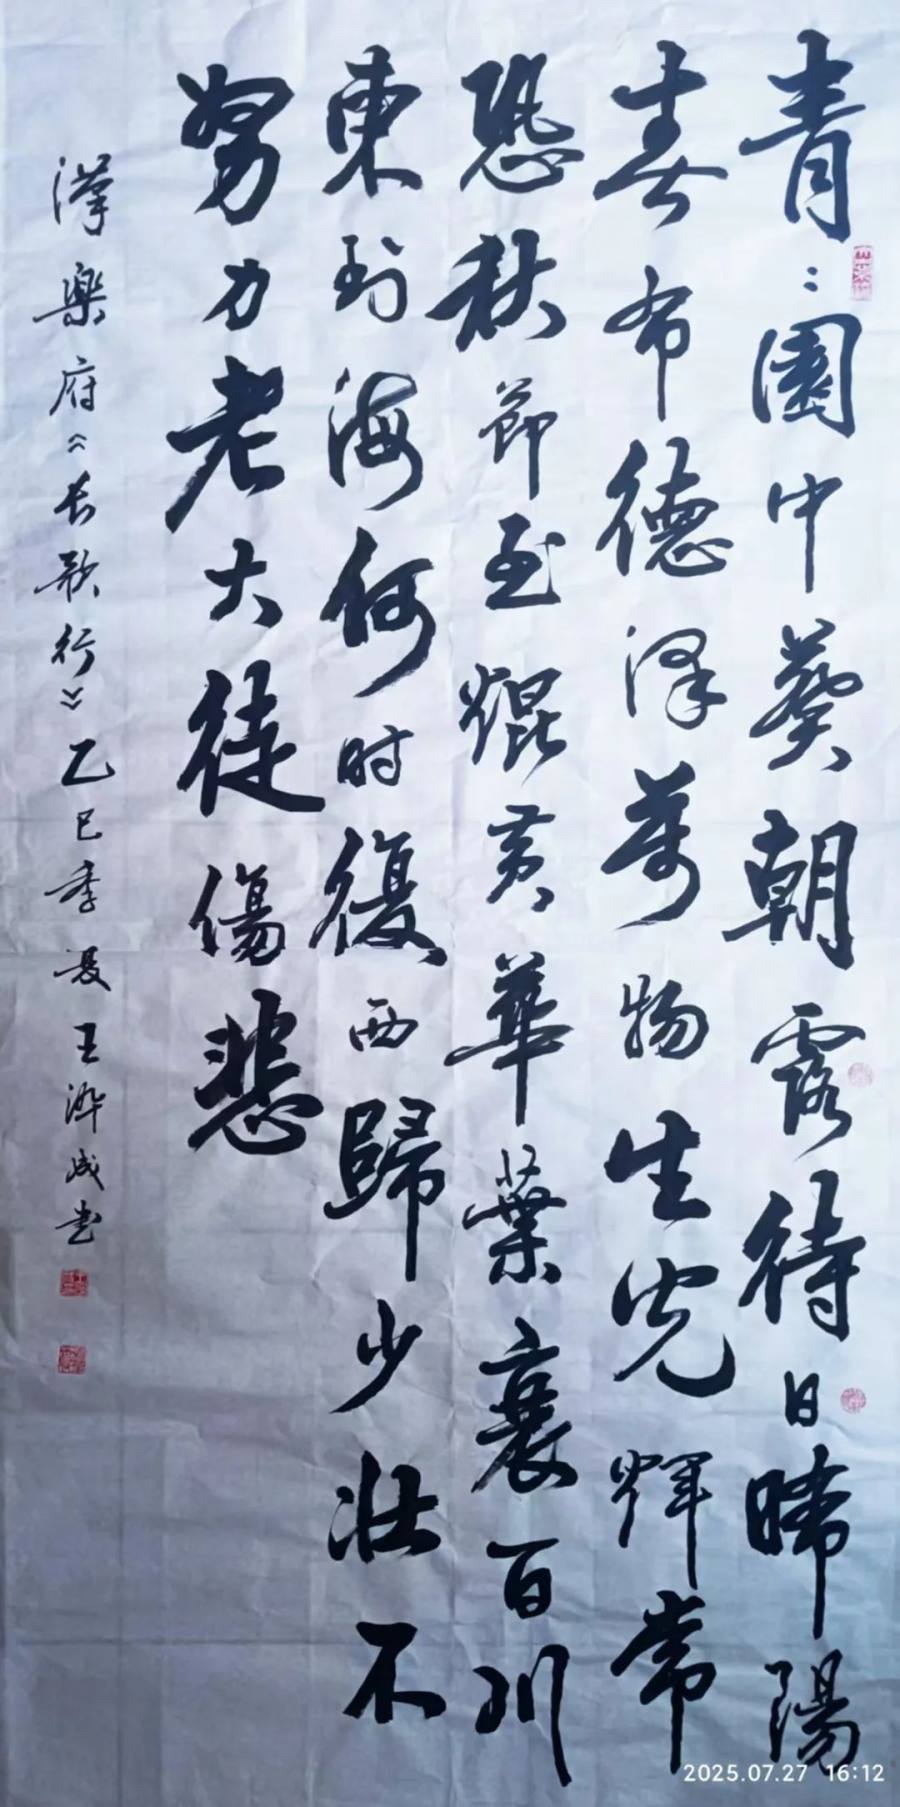 青〻園中葵朝露待日晞陽
春布德澤萬物生光輝常
恐秋節至焜黄華葉衰百川
東到海何时復西歸少壮不
努力老大徒傷悲
漢樂府《长歌行》乙巳季夏王成书
2025.07.27 16:12